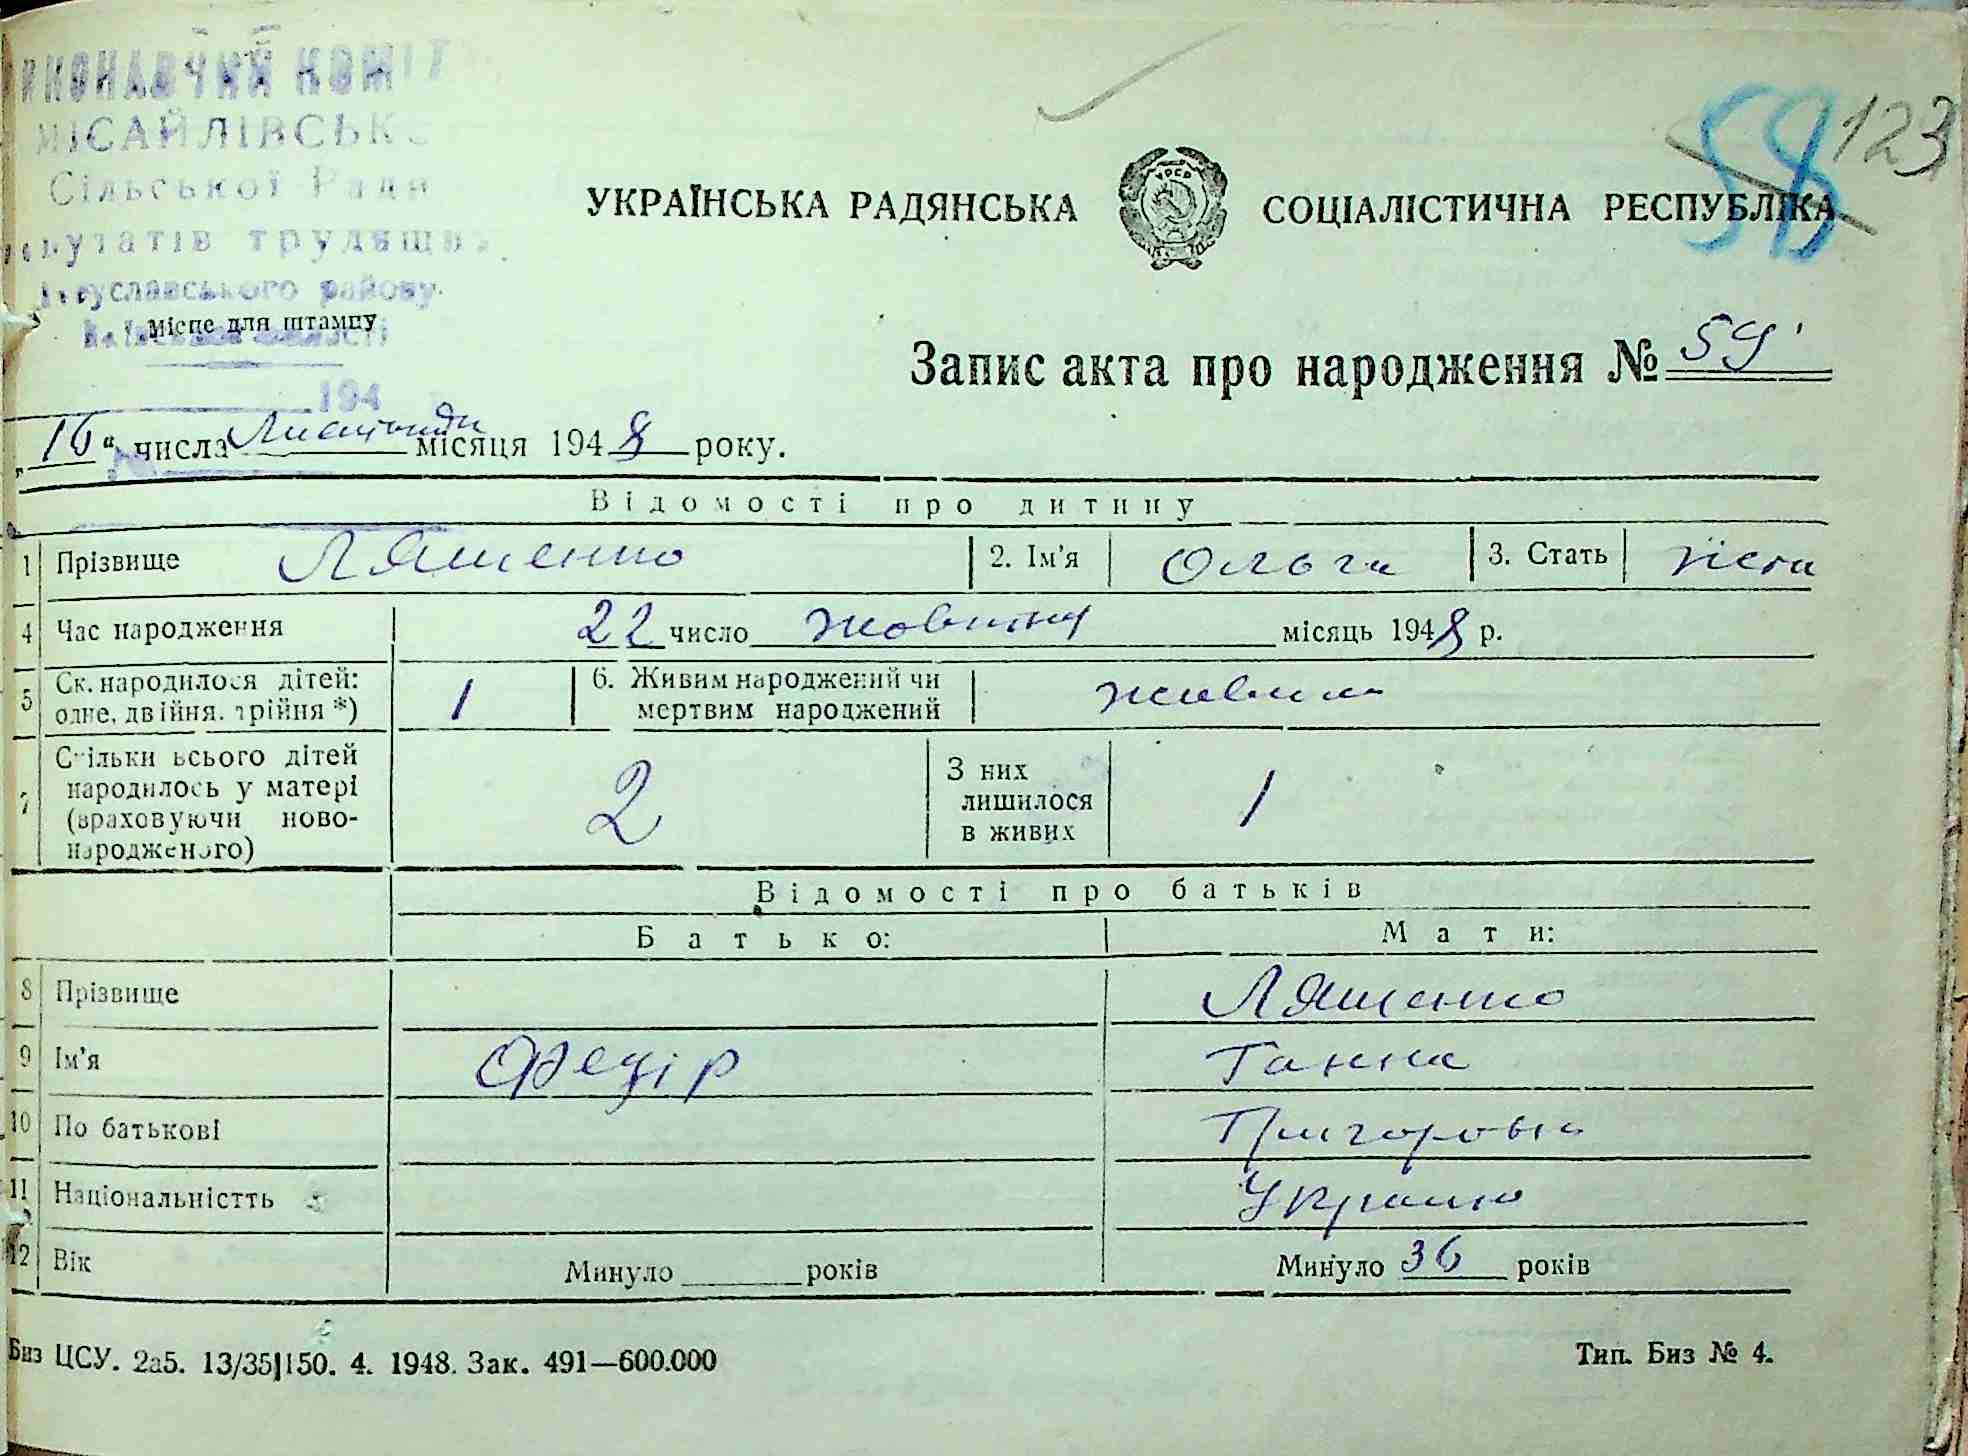 МІСАЙЛІВСЬК
Сільської Ради
трудящих
району
123
58
УКРАЇНСЬКА РАДЯНСЬКА СОЦІАЛІСТИЧНА РЕСПУБЛІКА
УРСР
Місце для штампу
Запис акта про народження № 59
194
„16“ числа Листопада місяця 1948 року.
Відомості про дитину
1 Прізвище Ляшенко 2. Ім’я Ольга 3. Стать жіноч
4 Час народження 22 число жовтня місяць 1948 р.
5 Ск. народилося дітей: 1 6. Живим народжений чи живим
одне, двійня, трійня *) мертвим народжений
Скільки всього дітей З них
7 народилось у матері 2 лишилося 1
(враховуючи ново- в живих
народженого)
Відомості про батьків
Батько: Мати:
8 Прізвище Ляшенко
9 Ім’я Федір Ганна
10 По батькові Григоровна
11 Національністть Україн
12 Вік Минуло років Минуло 36 років
Биз ЦСУ. 2а5. 13/35|150. 4. 1948. Зак. 491—600.000 Тип. Биз № 4.